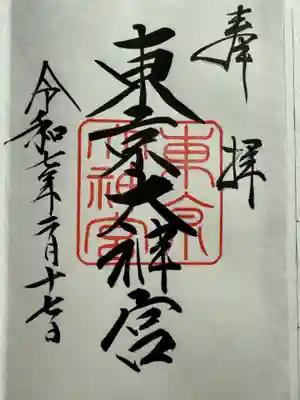 奉拝
東京大神宮
東京大神宮
令和七年二月十七日